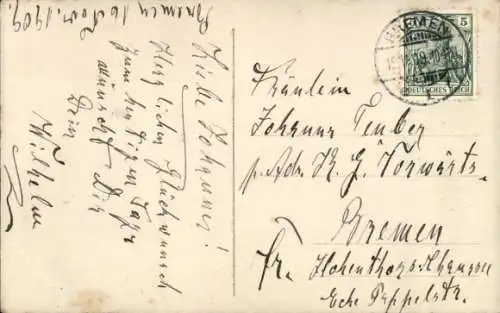 Bremen 16 Nov. 1909.
Liebe Johanne!
Herzlichen Glückwunsch
zum heutigen Tage
wünscht Dir
Dein
Wilhelm
BREMEN
5
DEUTSCHES REICH
Fräulein
Johanne Teuber
p. Adr. K. G. Vorwärts
Bremen
Hohenthorschaussee
Ecke Pappelstr.